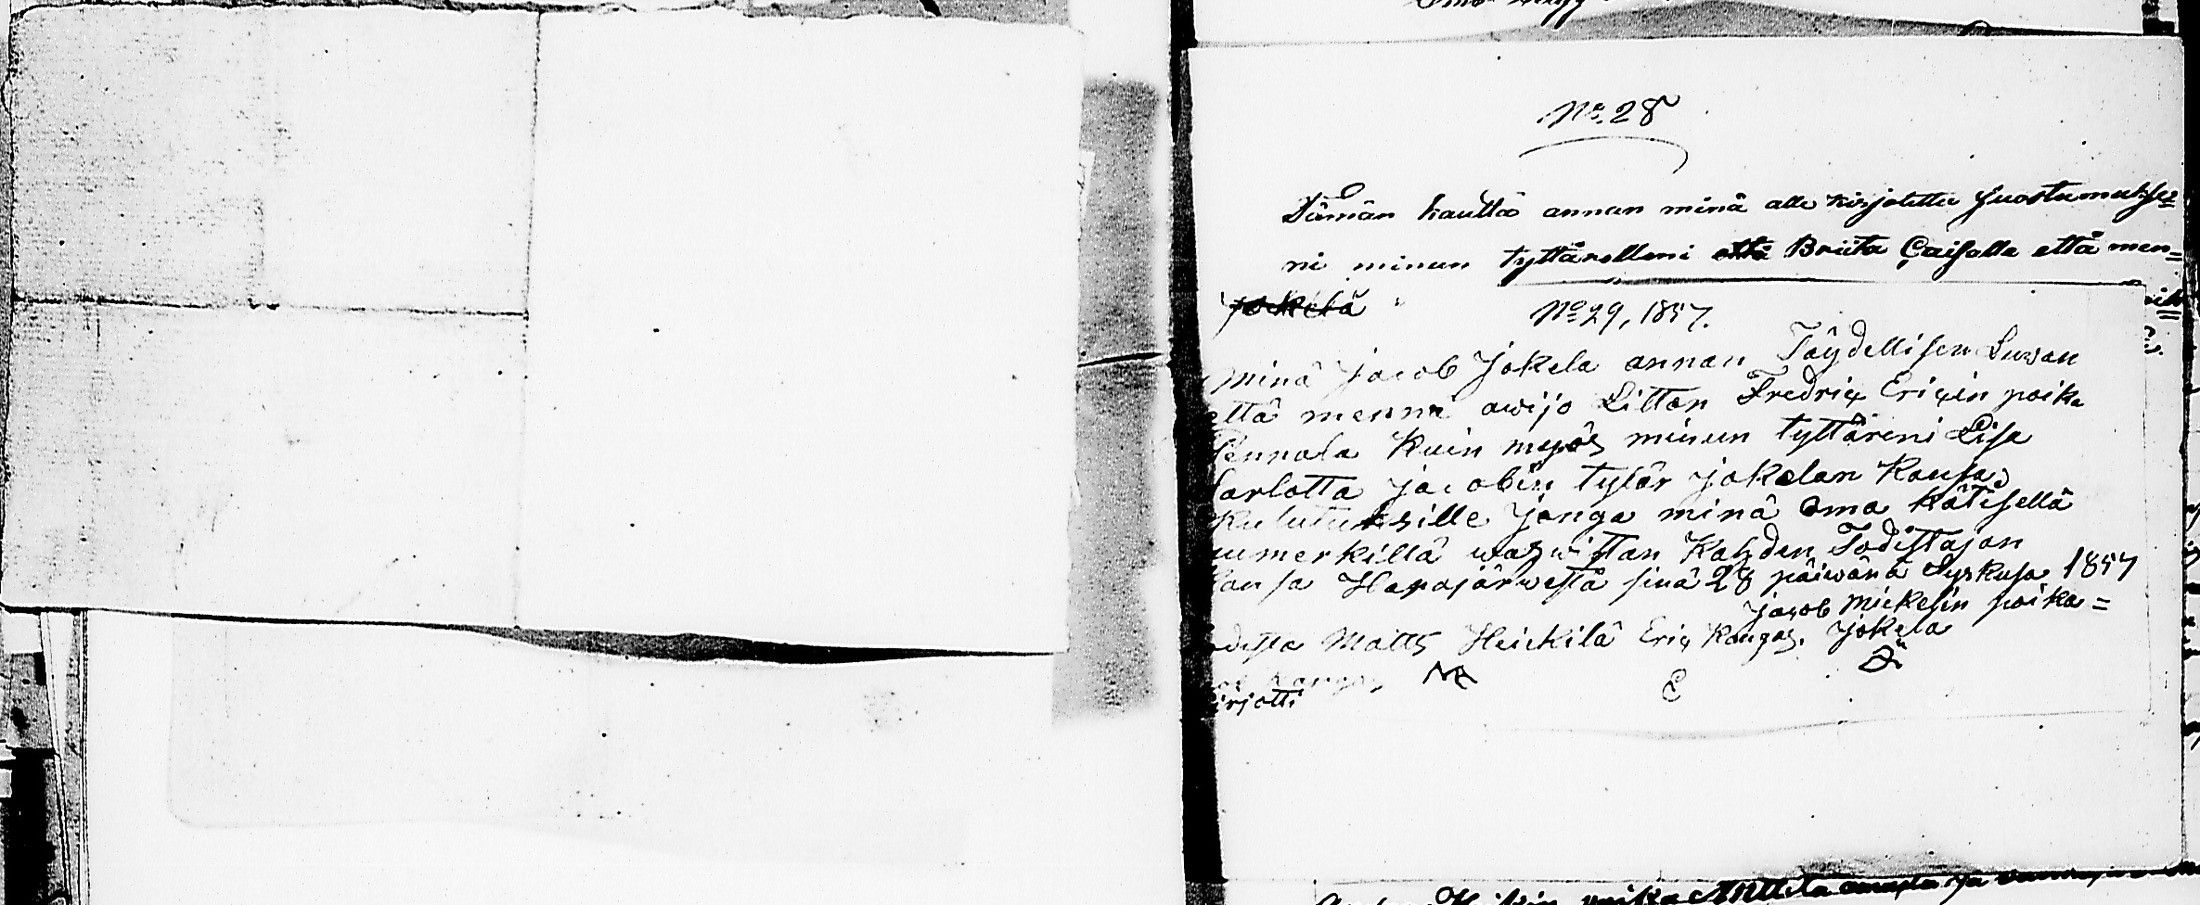 No. 28
Tämän kautta annan minä alle kirjotettu suostumukse=
ni minun tyttärelleni että Briita Caisalle että men=
Jokela
No 29, 1857.
Minä Jacob Jokela annan Täydellisen Luwan
että mennä awijo Litton Fredrix Ericin poika
Pennala Kuin myös minun tyttäreni Lisa
arlotta Jacobin tytär Jokelan Kansa
Kulutuksille Jonga minä oma kätisellä
umerkillä wahwistan Kahden Todistajan
kansa Harajärwestä sinä 28 päiwänä Syskusa 1857
Jacob Mickelin poika=
Jokela
distaa Matts Heickilä Eric Kangas.
Kangas
irjotti
E